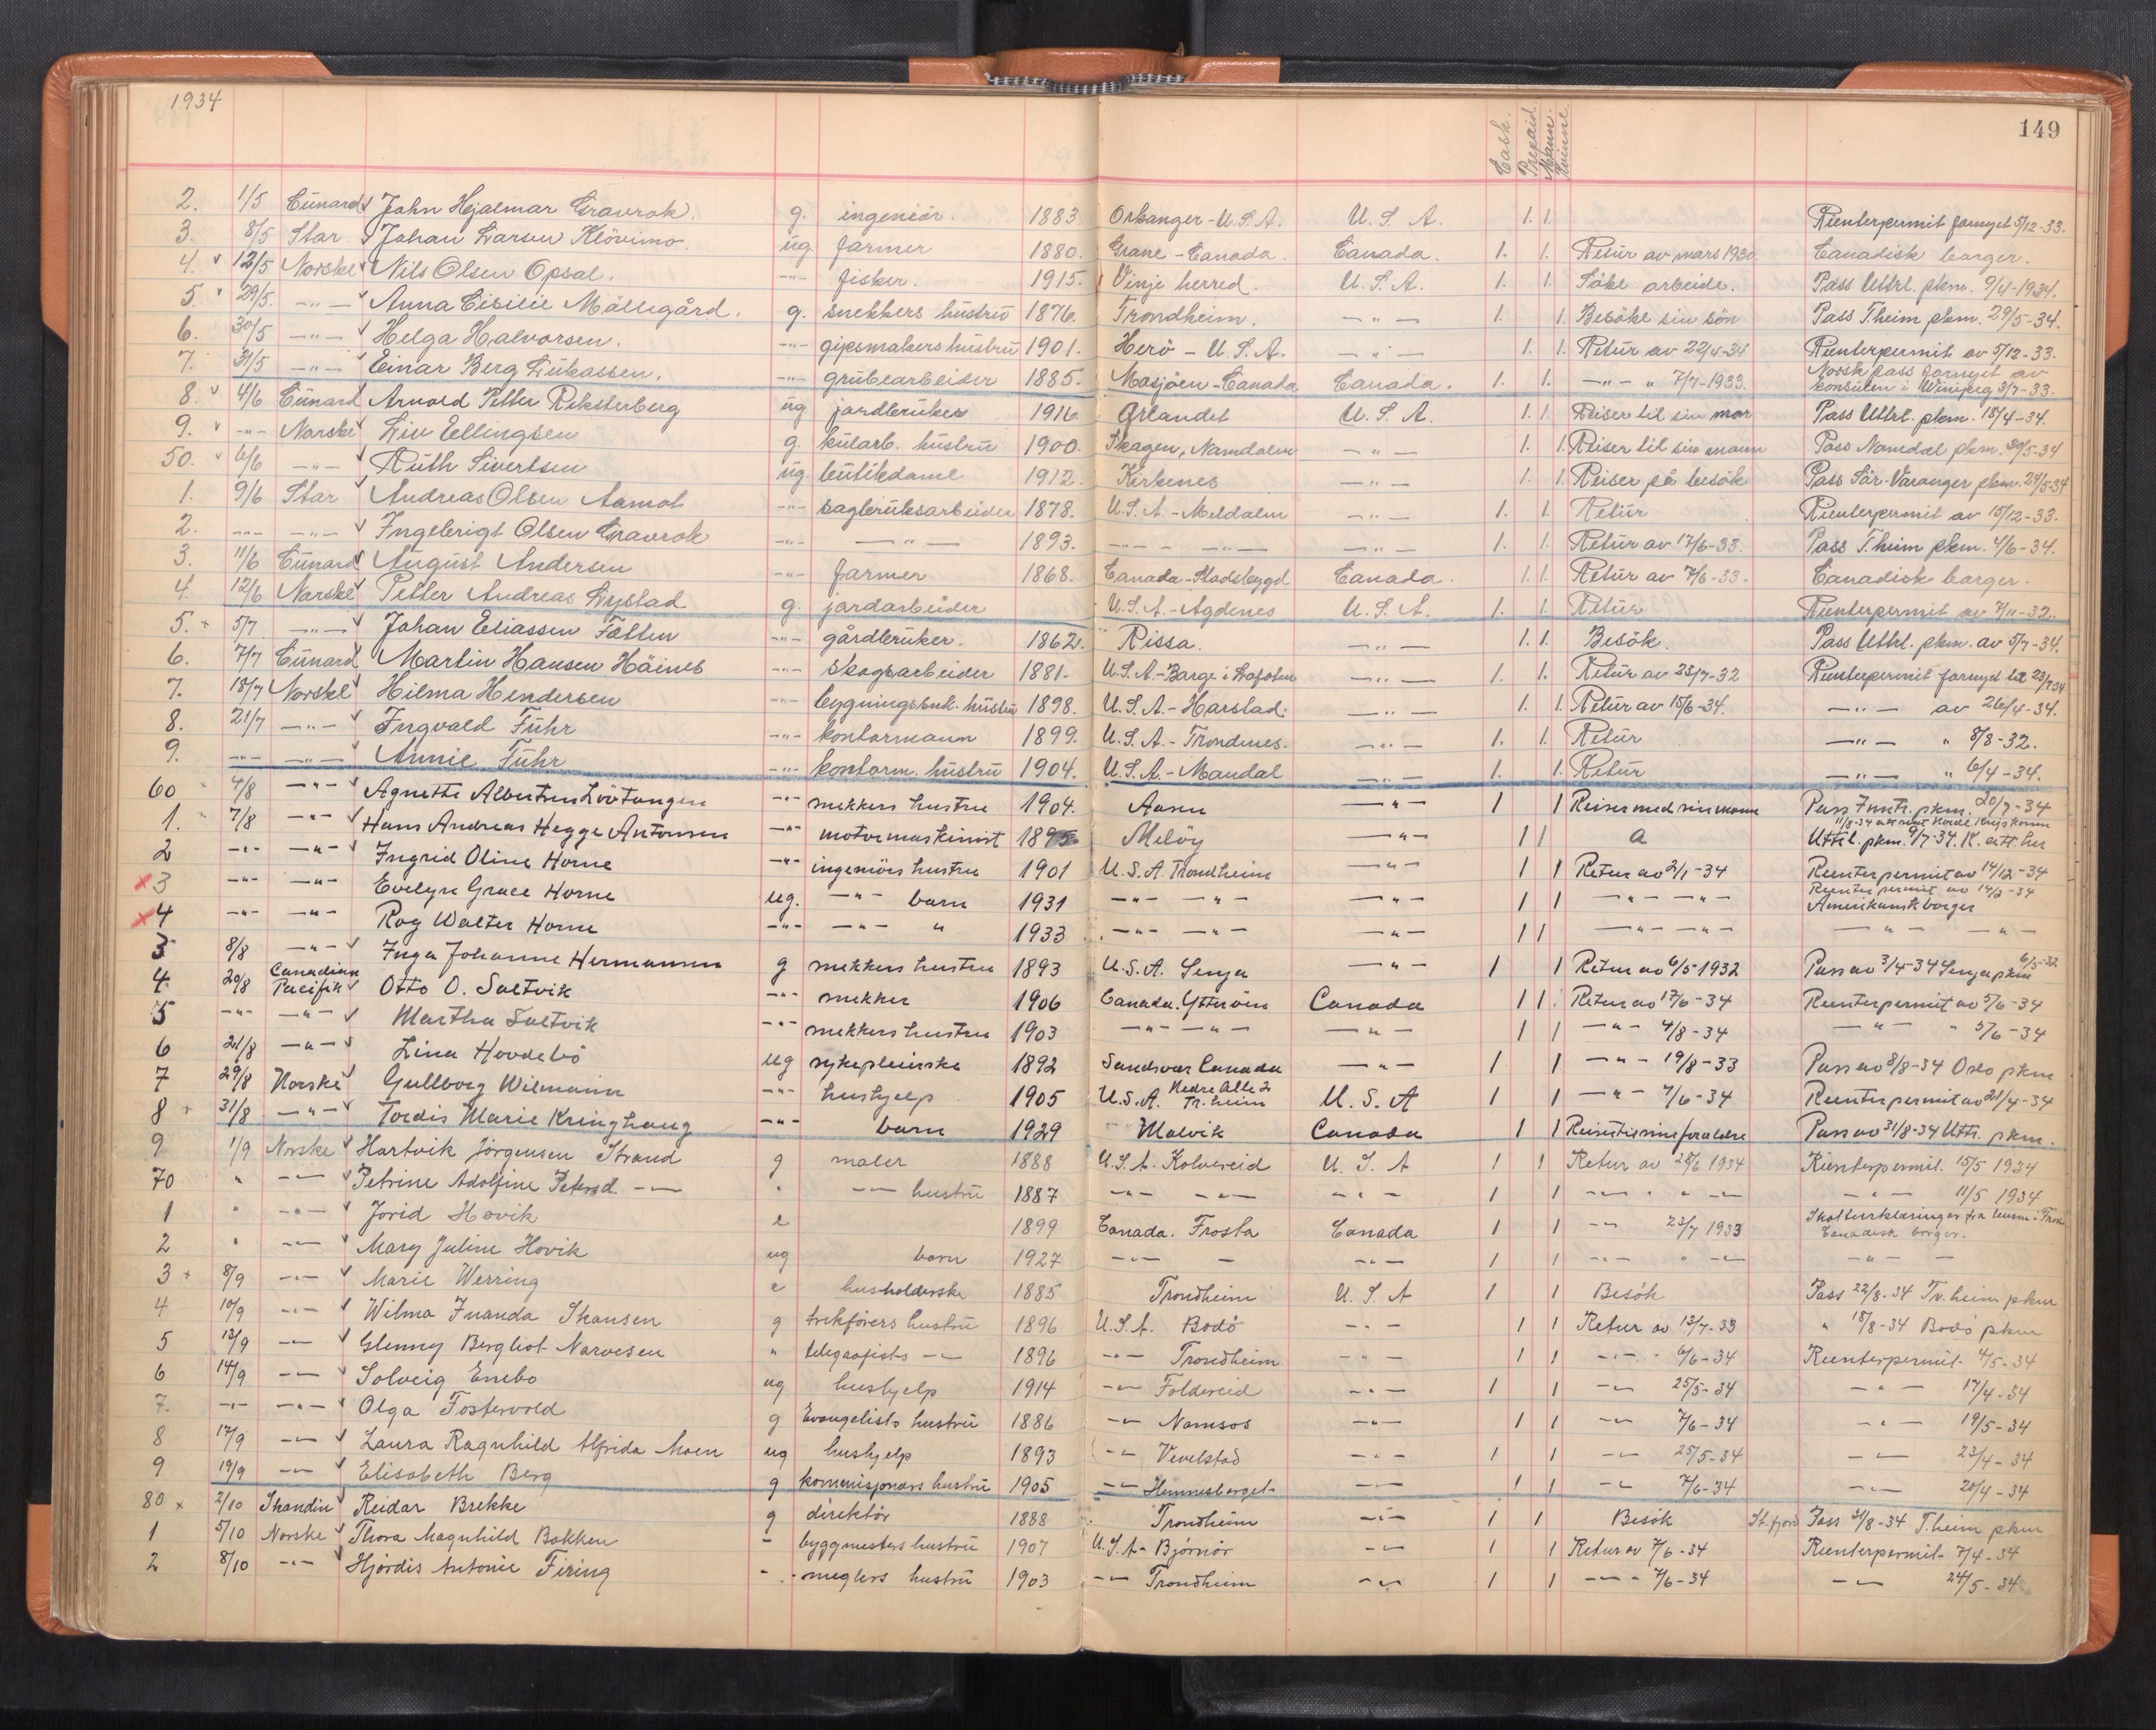 1934
Cash. Prepaid Mann. Kvinne.
149
2. 1/5 Cunard Johan Hjalmar Gravrok. g. ingeniör. 1883. Orkanger - U.S.A. U. S. A. 1. 1. Reenterpermit fornyet 5/12-33.
3. 8/5 Star Johan Larsen Klövimo. ug. farmer 1880. Grane - Canada. Canada. 1. 1. Retur av mars 1930. Canadisk borger.
4. 12/5 Norske Nils Olsen Opsal. -"- fisker. 1915. Vinje herred. U. S. A. 1. 1. Söke arbeide. Pass Uttrl. pkm. 9/4-1934.
5. 29/5. -"- Anna Cisilie Möllegård. g. snekkers hustru 1876. Trondheim. -"- 1. 1. Besöke sin sön Pass T.heim pkm. 29/5-34.
6. 30/5 -"- Helga Halvorsen. -"- gipsmakers hustru 1901. Herö - U. S. A. -"- 1. 1. Retur av 22/4-34 Reenterpermit av 5/12-33.
7. 31/5 -"- Einar Berg Lukassen. -"- grubearbeider 1885. Mosjöen - Canada Canada. 1. 1. -"- " 7/7-1933. Norsk pass fornyet av konsulen i Winipeg 3/7-33.
8. 4/6 Cunard Arnold Petter Reksterberg ug jordbruker 1916 Örlandet U. S. A. 1. 1. Reiser til sin mor Pass Uttrl. pkm. 18/4-34.
9. -"- Norske Liv Ellingsen g. kularb. hustru 1900. Skagen, Namdalen -"- 1. 1. Reiser til sin mann Pass Namdal pkm. 30/5-34
50. 6/6 -"- Ruth Sivertsen ug. butikdame 1912. Kirkenes -"- 1. 1. Reiser på besök Pass Sör-Varanger pkm. 24/5-34
1. 9/6 Star Andreas Olsen Aamot -"- sagbruksarbeider 1878. U. S. A. - Meldalen -"- 1. 1. Retur Reenterpermit av 15/12-33.
2. -"- -"- Ingebrigt Olsen Gravrok -"- -"- 1893. -"- -"- -"- 1. 1. Retur av 17/6-33. Pass T.heim pkm. 4/6-34.
3. 11/6 Cunard August Andersen -"- farmer 1868. Canada - Stadsbygd Canada. 1. 1. Retur av 7/6-33. Canadisk borger.
4. 12/6 Norske Petter Andreas Lystad g. jordarbeider U. S. A. - Agdenes U. S. A. 1. 1. Retur Reenterpermit av 7/11-32.
5. 5/7 -"- Johan Eliassen Fatten -"- gårdbruker. 1862. Rissa. -"- 1. 1. Besök. Pass Uttrl. pkm. av 5/7-34.
6. 7/7 Cunard Martin Hansen Häines -"- skogsarbeider 1881. U.S.A. - Borge i Lofoten -"- 1. 1. Retur av 23/7-32 Reenterpermit fornyet til 23/7 34
7. 18/7 Norske Hilma Hendersen -"- bygningssnk. hustru 1898. U. S. A. - Harstad. -"- 1. 1. Retur av 15/6-34. -"- av 26/4-34.
8. 21/7 -"- Ingvald Führ -"- kontormann 1899. U. S. A. - Trondenes. -"- 1. 1. Retur -"- " 8/8-32.
9. -"- -"- Annie Führ -"- kontorm. hustru 1904. U. S. A. - Mandal -"- 1. 1. Retur -"- " 6/4-34.
60 4/8 -"- Agnethe Albertine Lövtangen -"- snekkers hustru 1904. Aasen -"- 1 1 Reiser med sin mann Pass Inntr. pkm. 20/7-34
1. 7/8 -"- Hans Andreas Hegge Antonsen -"- motormaskinist 1895 Melöy -"- 1 1 a Uttrl. pkm. 9/7-34.
2 -"- -"- Ingrid Oline Horne -"- ingeniörs hustru 1901 U. S. A. Trondheim -"- 1 1 Retur av 2/1-34 Reenterpermit av 14/12-34
x3 -"- -"- Evelyn Grace Horne ug. -"- barn 1931 -"- -"- -"- 1 1 -"- -"- Reenter permit av 14/2-34 Amerikansk borger
x4 -"- -"- Roy Walter Horne -"- -"- " 1933 -"- -"- -"- 1 1 -"- -"- -"- -"-
3 8/8 -"- Inga Johanne Hermansen g snekkers hustru 1893 U. S. A. Senja -"- 1 1 Retur av 6/5-1932 Pass av 3/4-34 Senja pkm 6/5-32
4 20/8 Canadian Pacifik Otto O. Saltvik -"- snekker 1906 Canada. Ytterøen Canada 1 1 Retur av 17/6-34 Reenterpermit av 5/6-34
5 -"- -"- Martha Saltvik -"- snekkers hustru 1903 -"- -"- -"- 1 1 -"- 4/8-34 -"- " 5/6-34
6 21/8 -"- Lina Hovdebö ug sykepleierske 1892 Sandsvær Canada -"- 1 1 -"- 19/8-33 Pass av 8/8-34 Oslo pkm
7 29/8 Norske Gullborg Wilmann -"- hushjelp 1905 U.S.A. Nedre Alle 2 Tr.heim U. S. A 1 1 -"- 7/6-34 Reenterpermit av 21/4-34
8 31/8 -"- Tordis Marie Kringhaug -"- barn 1929 Malvik Canada 1 1 Reiser til sine foreldre Pass av 31/8-34 Uttr. pkm.
9 1/9 Norske Hartvik Jörgensen Strand g maler 1888 U. S. A. Kolvereid U. S. A 1 1 Retur av 28/6 1934 Reenterpermit. 15/5 1934
70 " -"- Petrine Adolfine Petersd. -"- " -"- hustru 1887 -"- -"- -"- 1 1 -"- " " -"- -"- 11/5 1934
1 " -"- Jorid Hovik e 1899 Canada. Frosta Canada 1 1 -"- 23/7 1933 Canadisk borger.
2 " -"- Mary Juline Hovik ug barn 1927 -"- - -"- 1 1 -"- " -"- -"- -
3 8/9 -"- Marie Werring e husholderske 1885 Trondheim U. S. A 1 1 Besök Pass 22/8-34 Tr.heim pkm
4 10/9 -"- Wilma Inanda Skansen g trekförers hustru 1896 U.S.A. Bodö -"- 1 1 Retur av 13/7-33 " 18/8-34 Bodö pkm
5 13/9 -"- Glenny Bergliot Narvesen " telegrafists -"- 1896 -"- Trondheim -"- 1 1 -"- " 6/6-34 Reenterpermit 4/5-34
6 14/9 -"- Solveig Enebo ug hushjelp 1914 -"- Foldereid -"- 1 1 -"- 25/5-34 -"- 17/4-34
7. -"- -"- Olga Fostervold g Evangelists hustru 1886 -"- Namsos -"- 1 1 -"- 7/6-34 -"- 19/5-34
8 17/9 -"- Laura Ragnhild Alfrida Moen ug hushjelp 1893 -"- Vevelstad -"- 1 1 -"- 25/5-34 -"- 23/4-34
9 19/9 -"- Elisabeth Berg g kommisjonærs hustru 1905 -"- Hemnesberget -"- 1 1 -"- 7/6-34 -"- 20/4-34
80 x 2/10 Skandin Reidar Brekke g direktör 1888 Trondheim -"- 1 1 Besök St.fjord Pass 31/8-34 T.heim pkm
1 5/10 Norske Thora Magnhild Bakken - byggmesters hustru 1907 U.S.A - Bjørnör -"- 1 1 Retur av 7/6-34 Reenterpermit 7/4-34
2 8/10 -"- Hjördis Antonie Firing -"- meglers hustru 1903 -"- Trondheim -"- 1 1 -"- " 7/6-34 -"- 24/5-34